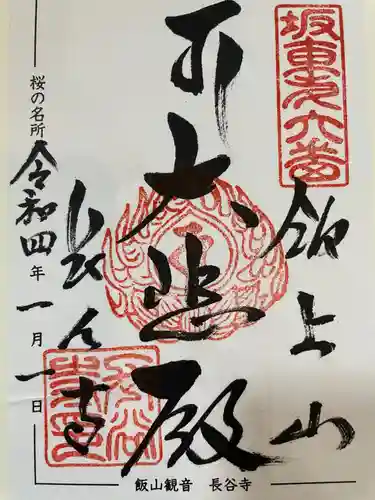 坂東第六番
飯上山
大悲殿
長谷寺
桜の名所
令和四年一月一日
飯山観音 長谷寺